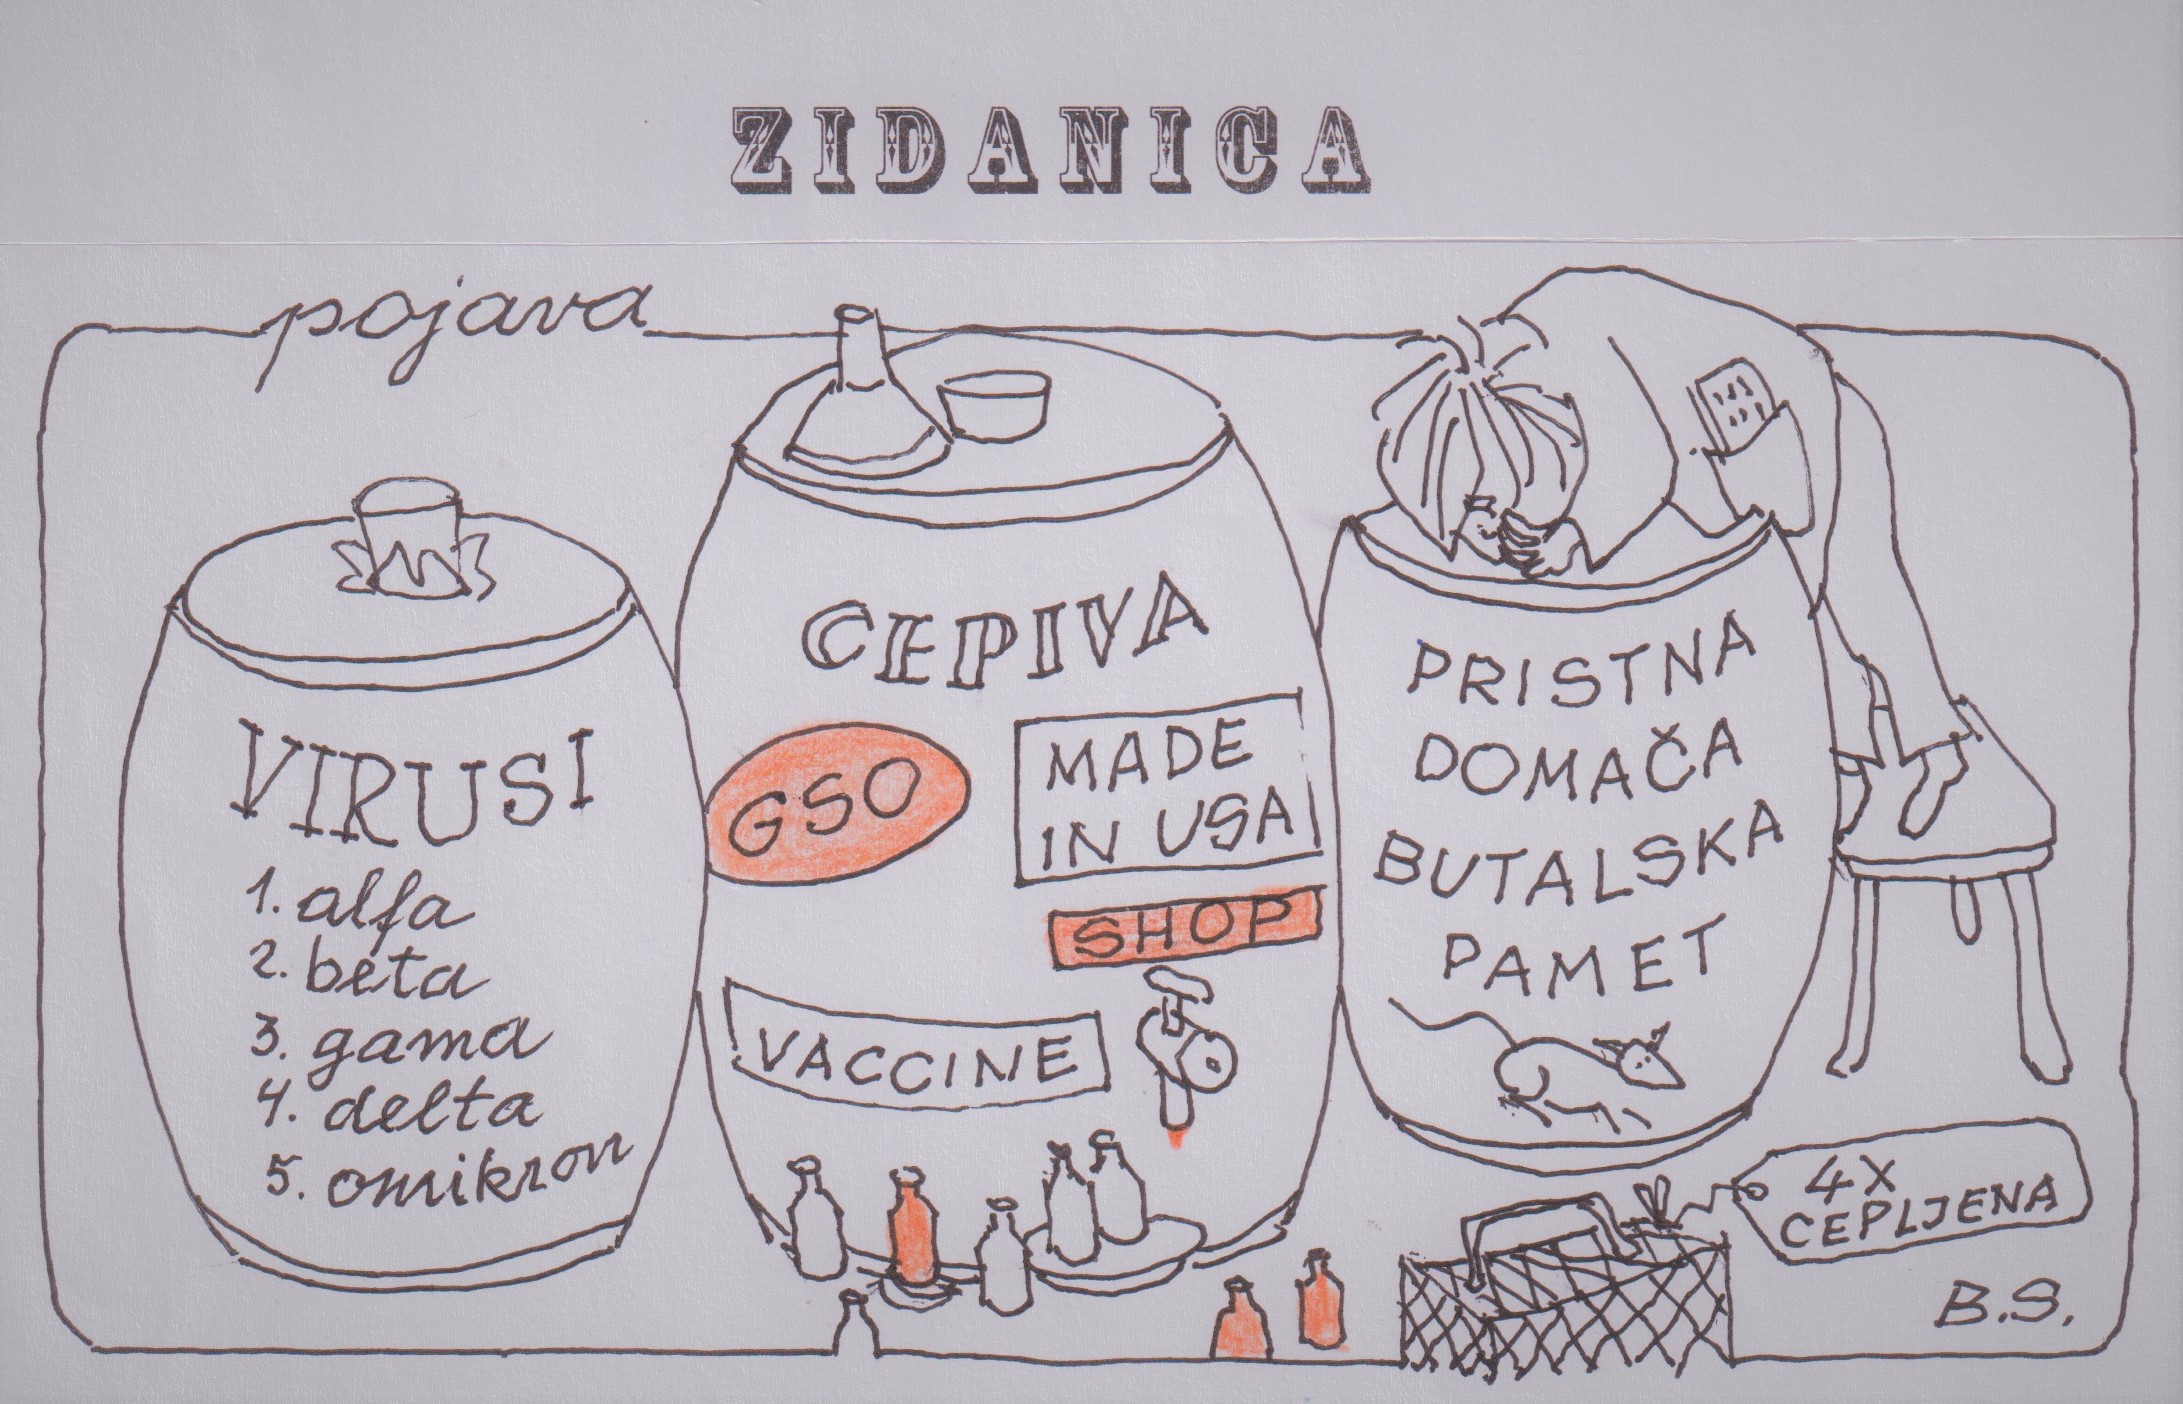 ZIDANICA
pojava
VIRUSI
1. alfa
2. beta
3. gama
4. delta
5. omikron
CEPIVA
GSO
MADE
IN USA
SHOP
VACCINE
PRISTNA
DOMAČA
BUTALSKA
PAMET
4X
CEPLJENA
B.S.